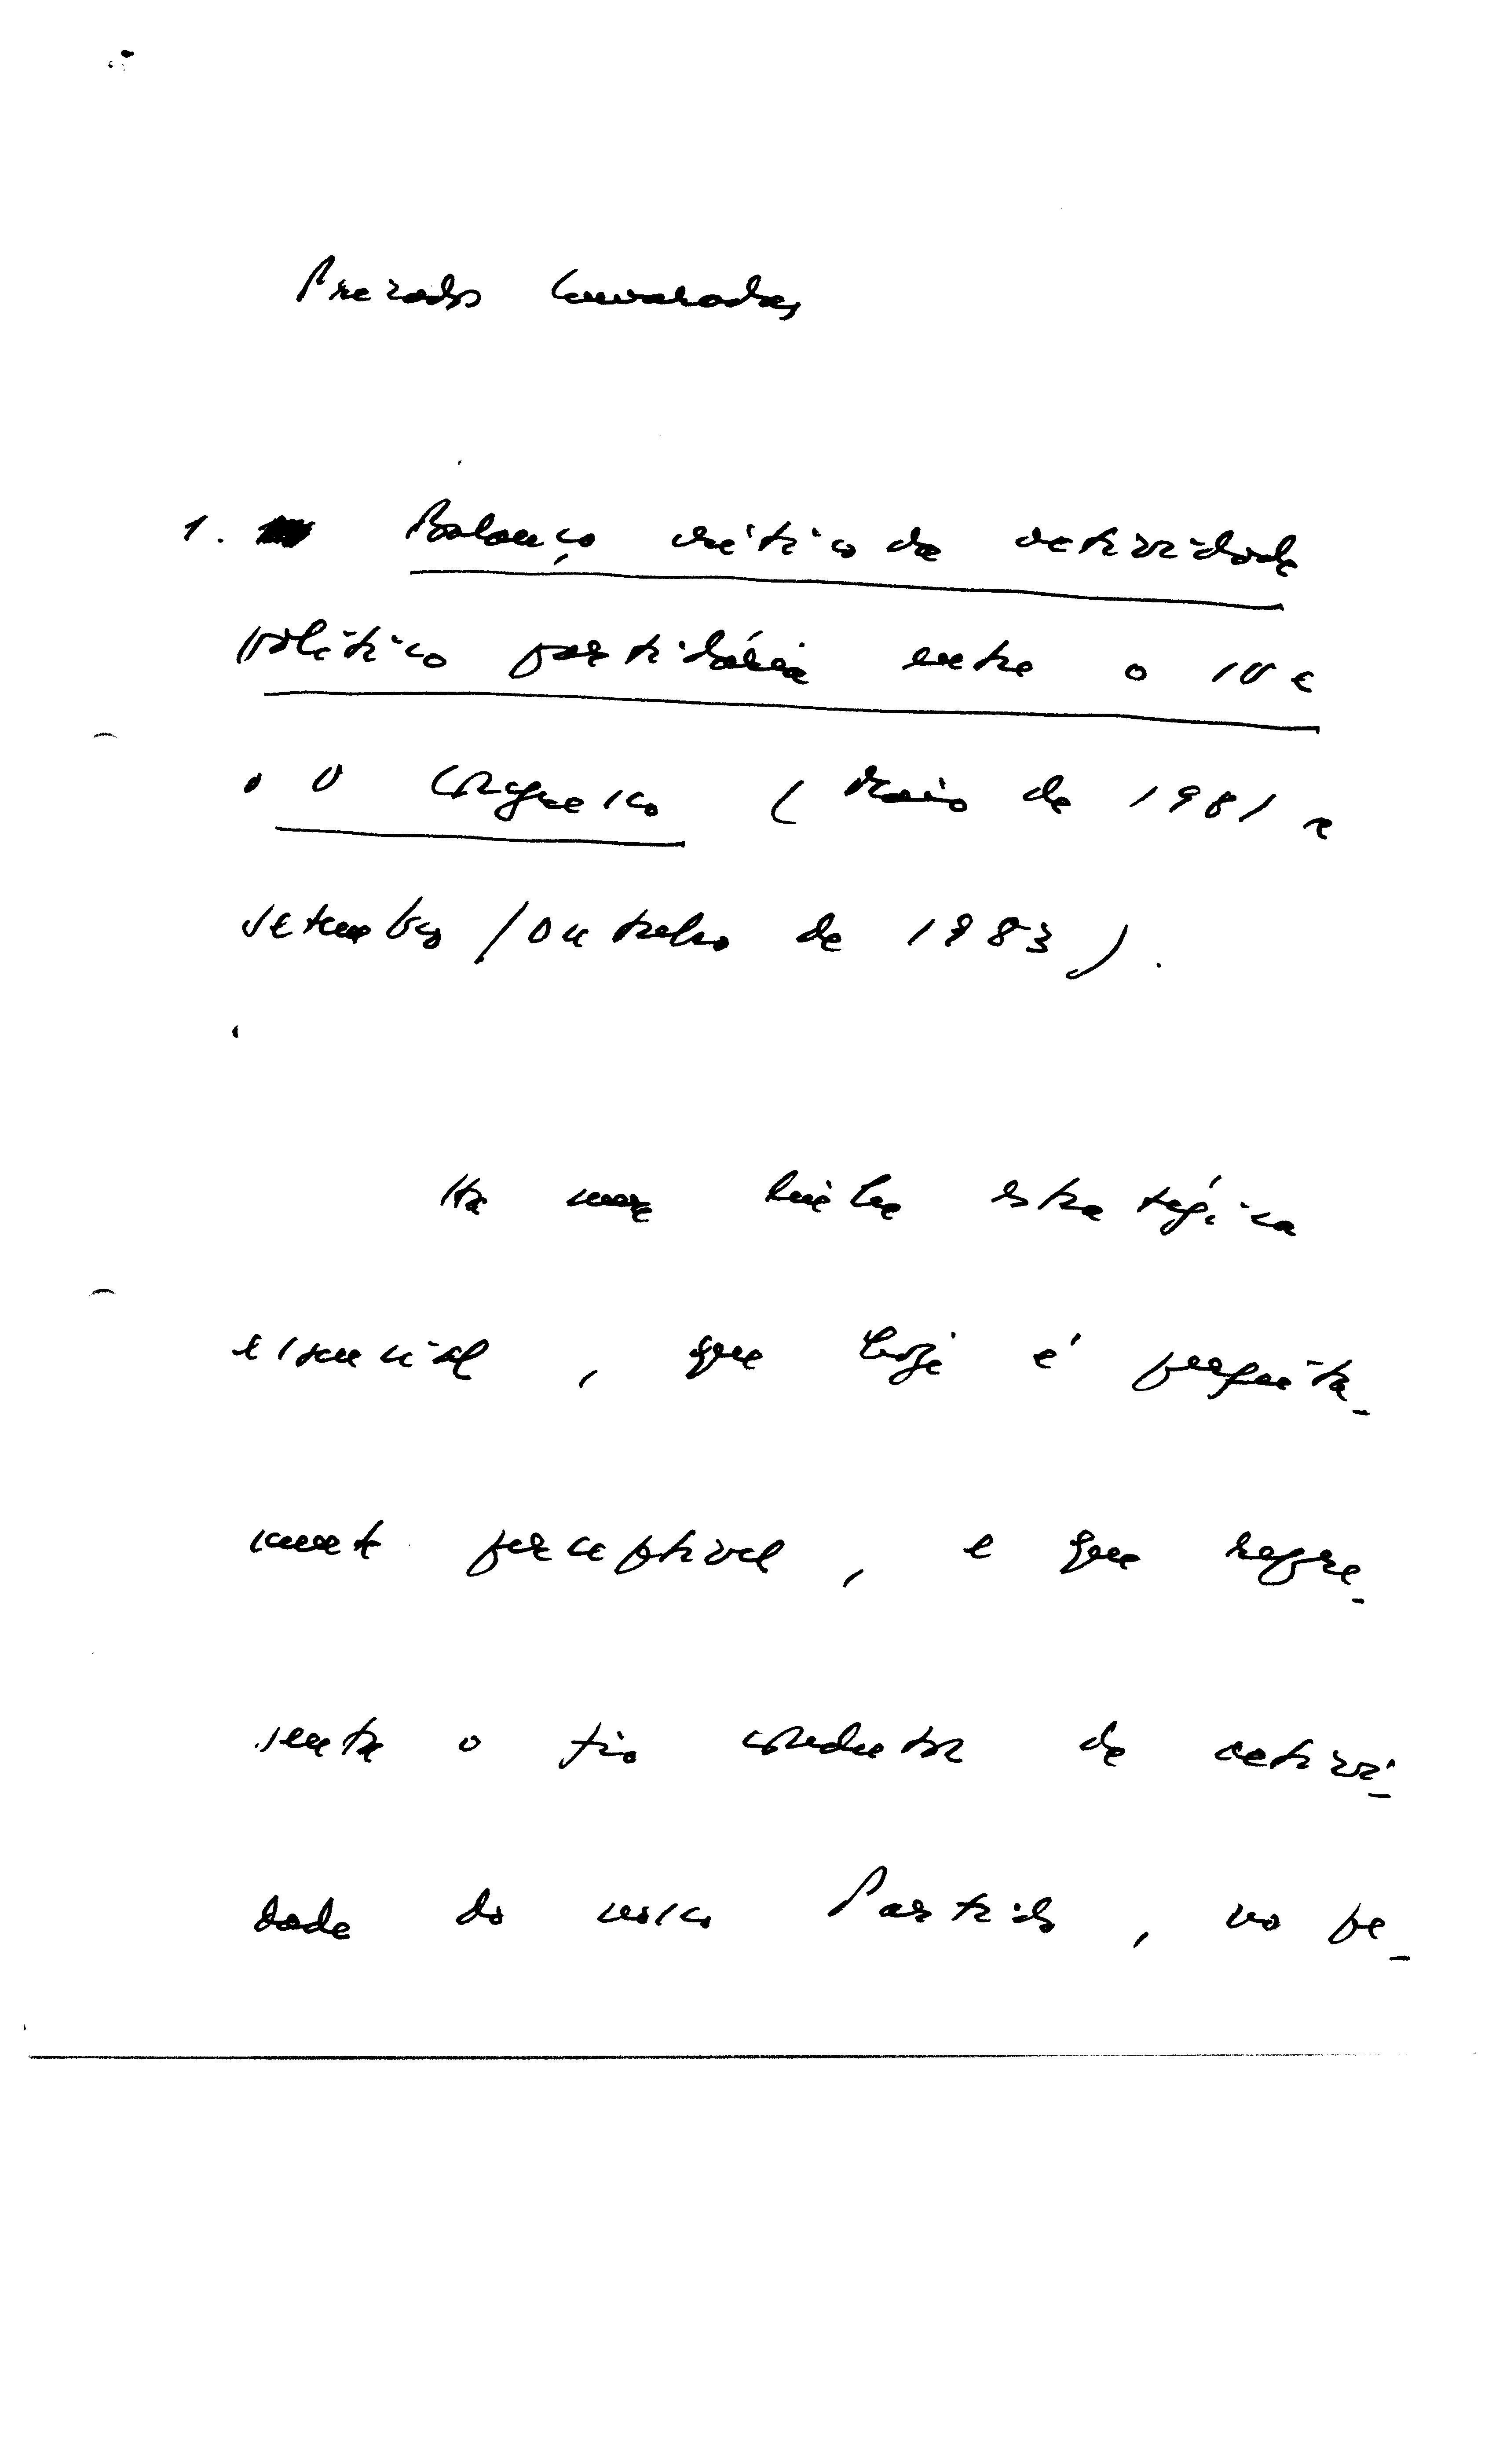 Prezados Camaradas
1. Balanço crítico da actividade
político partidária entre o IV e
o V Congresso (Maio de 1981 a
Setembro/Outubro de 1983).
Há uma linha estratégica
essencial, que hoje é perfeita-
mente perceptível, e que repre-
senta o fio condutor da activi-
dade do nosso Partido, no pe-